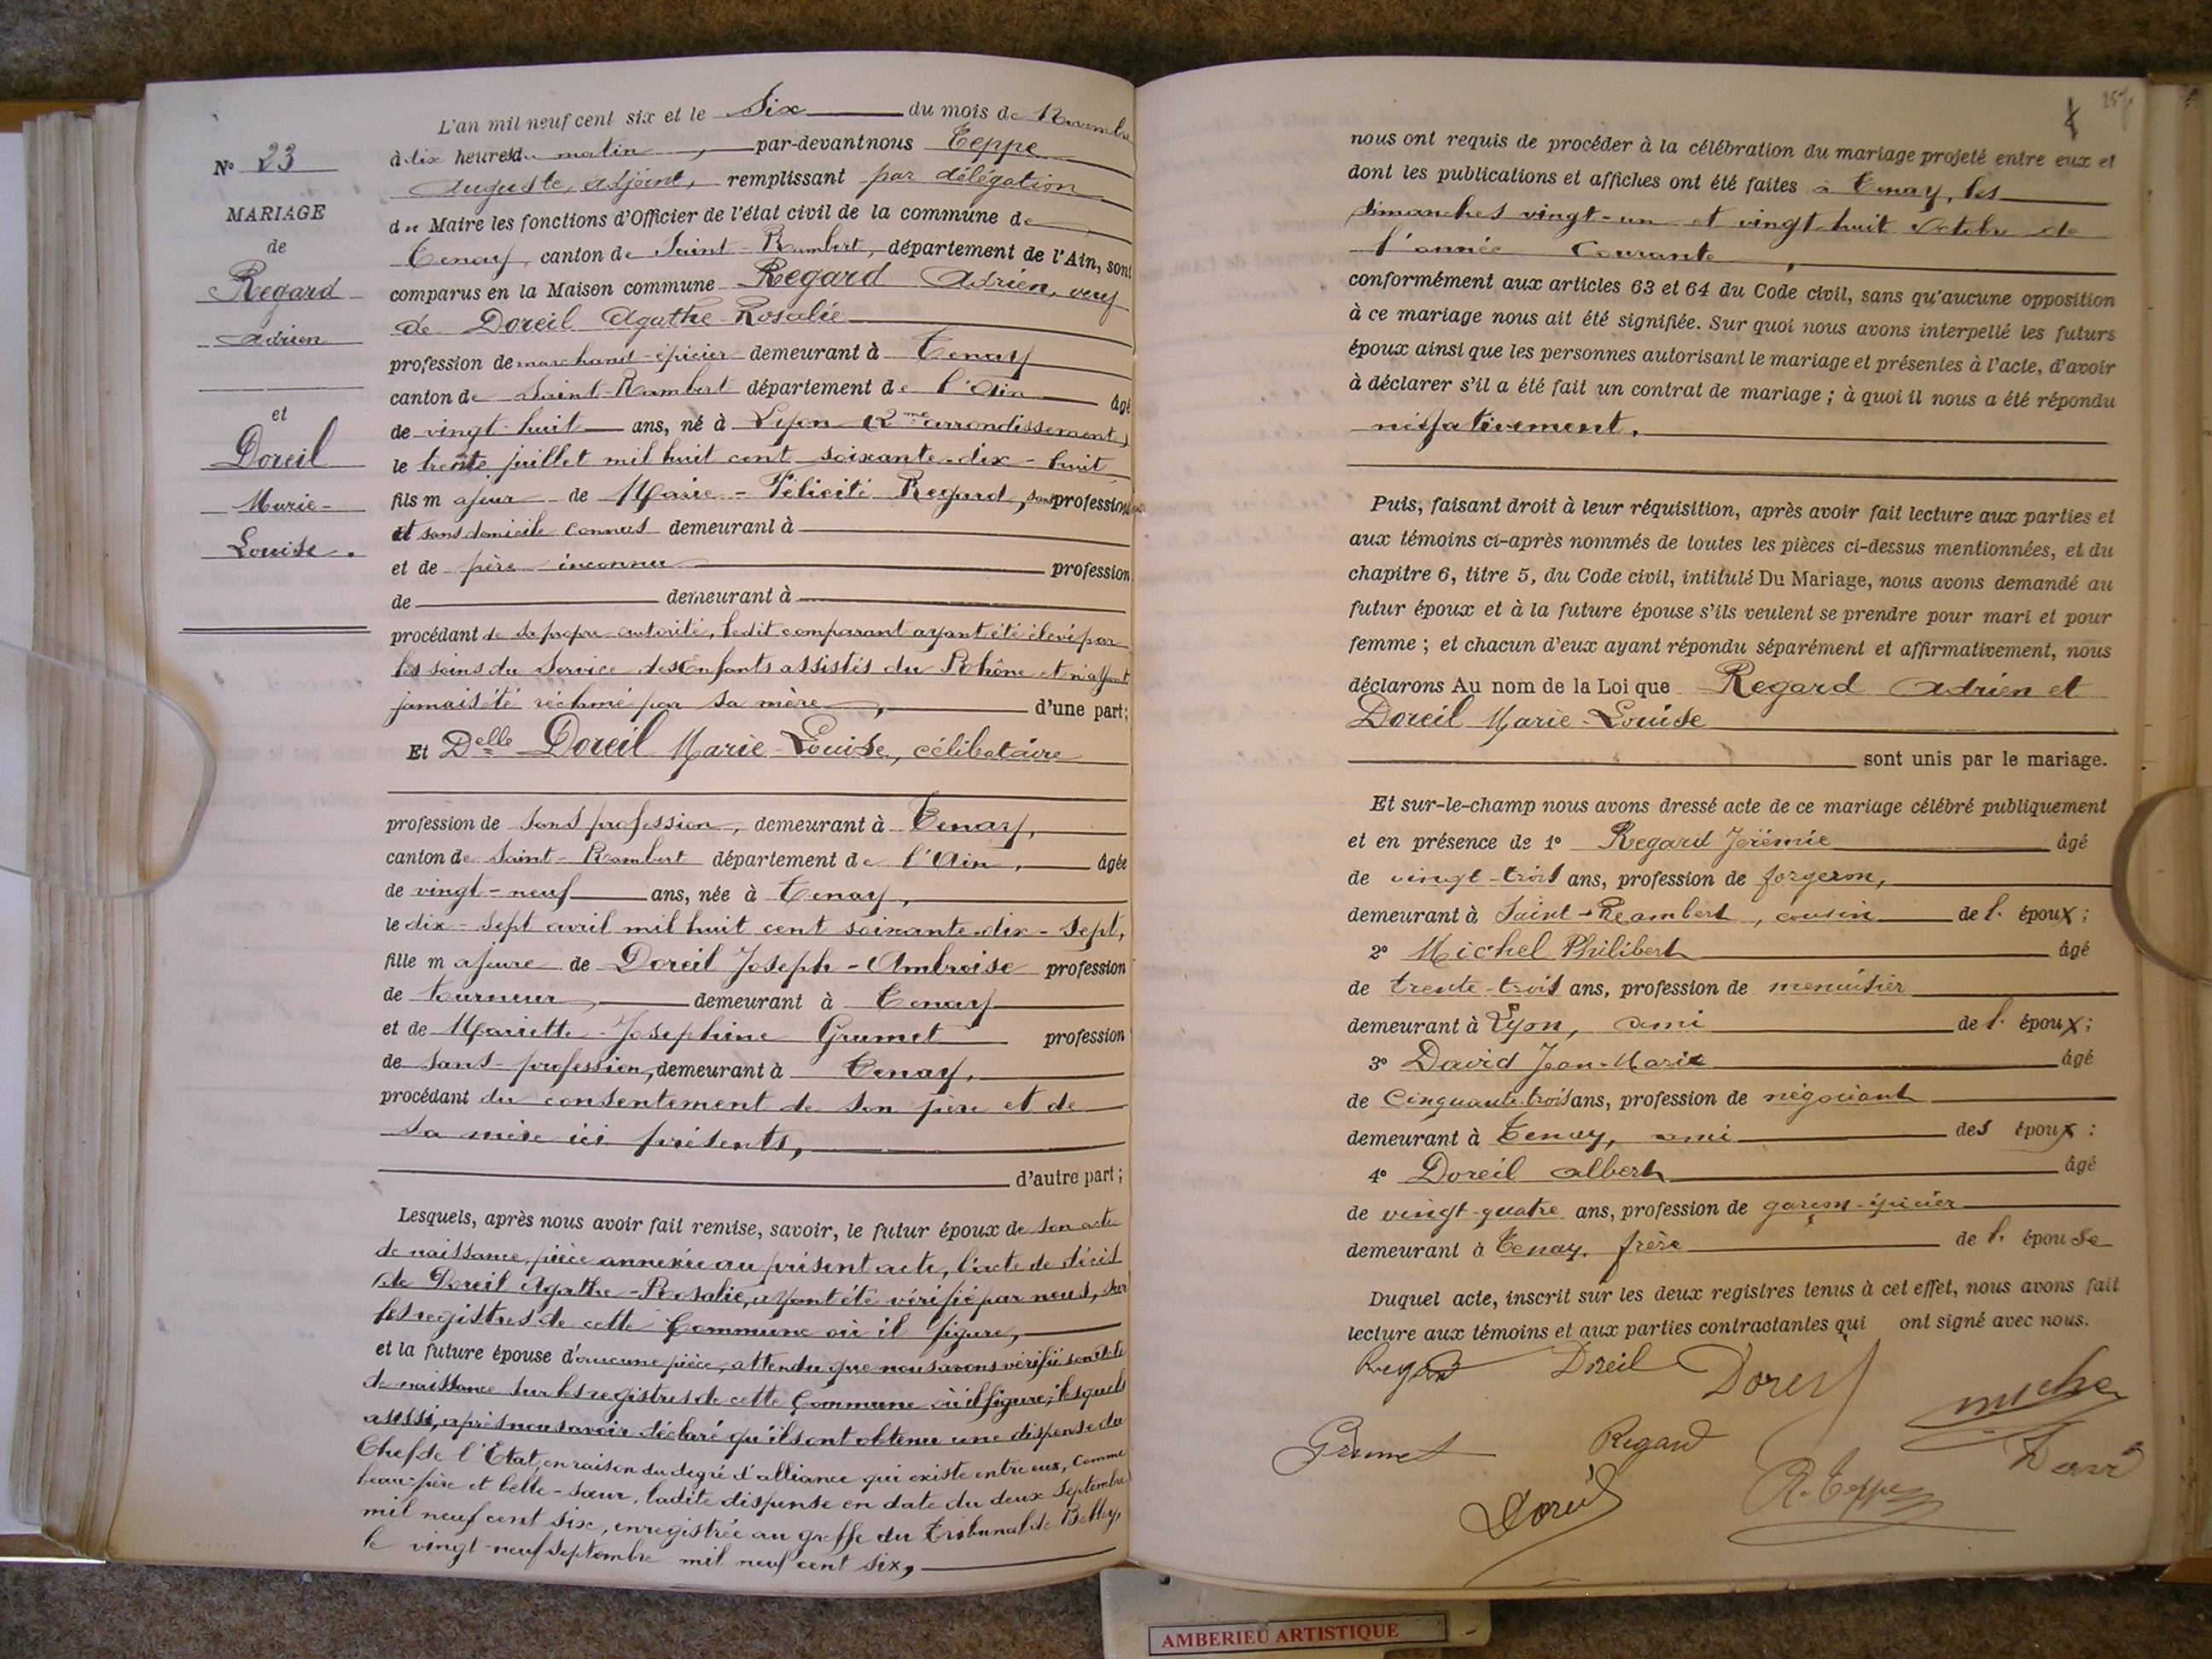 L'an mil neuf cent six et le Six du mois de Novembre
à dix heures du matin, par-devant nous Teppe
Auguste, adjoint, remplissant par délégation
du Maire les fonctions d'Officier de l'état civil de la commune de
Tenay, canton de Saint-Rambert, département de l'Ain, sont
comparus en la Maison commune Regard Adrien, veuf
de Doreil Agathe-Rosalie
profession de marchand-épicier demeurant à Tenay
canton de Saint-Rambert département de l'Ain âgé
de vingt-huit ans, né à Lyon (2me arrondissement)
le trente juillet mil huit cent soixante-dix-huit
fils majeur de Marie-Félicité Regard, sans profession
et sans domicile connus demeurant à
et de père inconnu profession
de demeurant à
procédant de sa propre autorité, ledit comparant ayant été élevé par
les soins du Service des Enfants assistés du Rhône et n'ayant
jamais été réclamé par sa mère, d'une part;
Et Delle Doreil Marie-Louise, célibataire
profession de sans profession, demeurant à Tenay,
canton de Saint-Rambert département de l'Ain, âgée
de vingt-neuf ans, née à Tenay,
le dix-sept avril mil huit cent soixante-dix-sept,
fille majeure de Doreil Joseph-Ambroise profession
de tourneur, demeurant à Tenay
et de Mariette Joséphine Grumet profession
de sans profession, demeurant à Tenay,
procédant du consentement de son père et de
sa mère ici présents,
d'autre part;
Lesquels, après nous avoir fait remise, savoir, le futur époux de son acte
de naissance, pièce annexée au présent acte, l'acte de décès
de Doreil Agathe-Rosalie, ayant été vérifié par nous, sur
les registres de cette Commune où il figure,
et la future épouse d'aucune pièce, attendu que nous avons vérifié son acte
de naissance sur les registres de cette Commune où il figure; lesquels
aussi, après nous avoir déclaré qu'ils ont obtenu une dispense du
Chef de l'Etat, en raison du degré d'alliance qui existe entre eux, comme
beau-frère et belle-sœur, ladite dispense en date du deux Septembre
mil neuf cent six, enregistrée au greffe du Tribunal de Belley,
le vingt-neuf septembre mil neuf cent six,
N° 23
MARIAGE
de
Regard
Adrien
et
Doreil
Marie-
Louise.
nous ont requis de procéder à la célébration du mariage projeté entre eux et
dont les publications et affiches ont été faites à Tenay, les
dimanches vingt-un et vingt-huit Octobre de
l'année courante,
conformément aux articles 63 et 64 du Code civil, sans qu'aucune opposition
à ce mariage nous ait été signifiée. Sur quoi nous avons interpellé les futurs
époux ainsi que les personnes autorisant le mariage et présentes à l'acte, d'avoir
à déclarer s'il a été fait un contrat de mariage; à quoi il nous a été répondu
négativement.
Puis, faisant droit à leur réquisition, après avoir fait lecture aux parties et
aux témoins ci-après nommés de toutes les pièces ci-dessus mentionnées, et du
chapitre 6, titre 5, du Code civil, intitulé Du Mariage, nous avons demandé au
futur époux et à la future épouse s'ils veulent se prendre pour mari et pour
femme; et chacun d'eux ayant répondu séparément et affirmativement, nous
déclarons Au nom de la Loi que Regard Adrien et
Doreil Marie-Louise
sont unis par le mariage.
Et sur-le-champ nous avons dressé acte de ce mariage célébré publiquement
et en présence de 1° Regard Jérémie âgé
de vingt-trois ans, profession de forgeron,
demeurant à Saint-Rambert, cousin de l'époux;
2° Michel Philibert âgé
de trente-trois ans, profession de menuisier
demeurant à Lyon, ami de l'époux;
3° David Jean-Marie âgé
de cinquante-trois ans, profession de négociant
demeurant à Tenay, ami des époux:
4° Doreil Albert âgé
de vingt-quatre ans, profession de garçon-épicier
demeurant à Tenay, frère de l'épouse
Duquel acte, inscrit sur les deux registres tenus à cet effet, nous avons fait
lecture aux témoins et aux parties contractantes qui ont signé avec nous.
Regard Doreil Doreil
Michel
Grumet Regard David
Doreil A. Teppe
AMBERIEU ARTISTIQUE